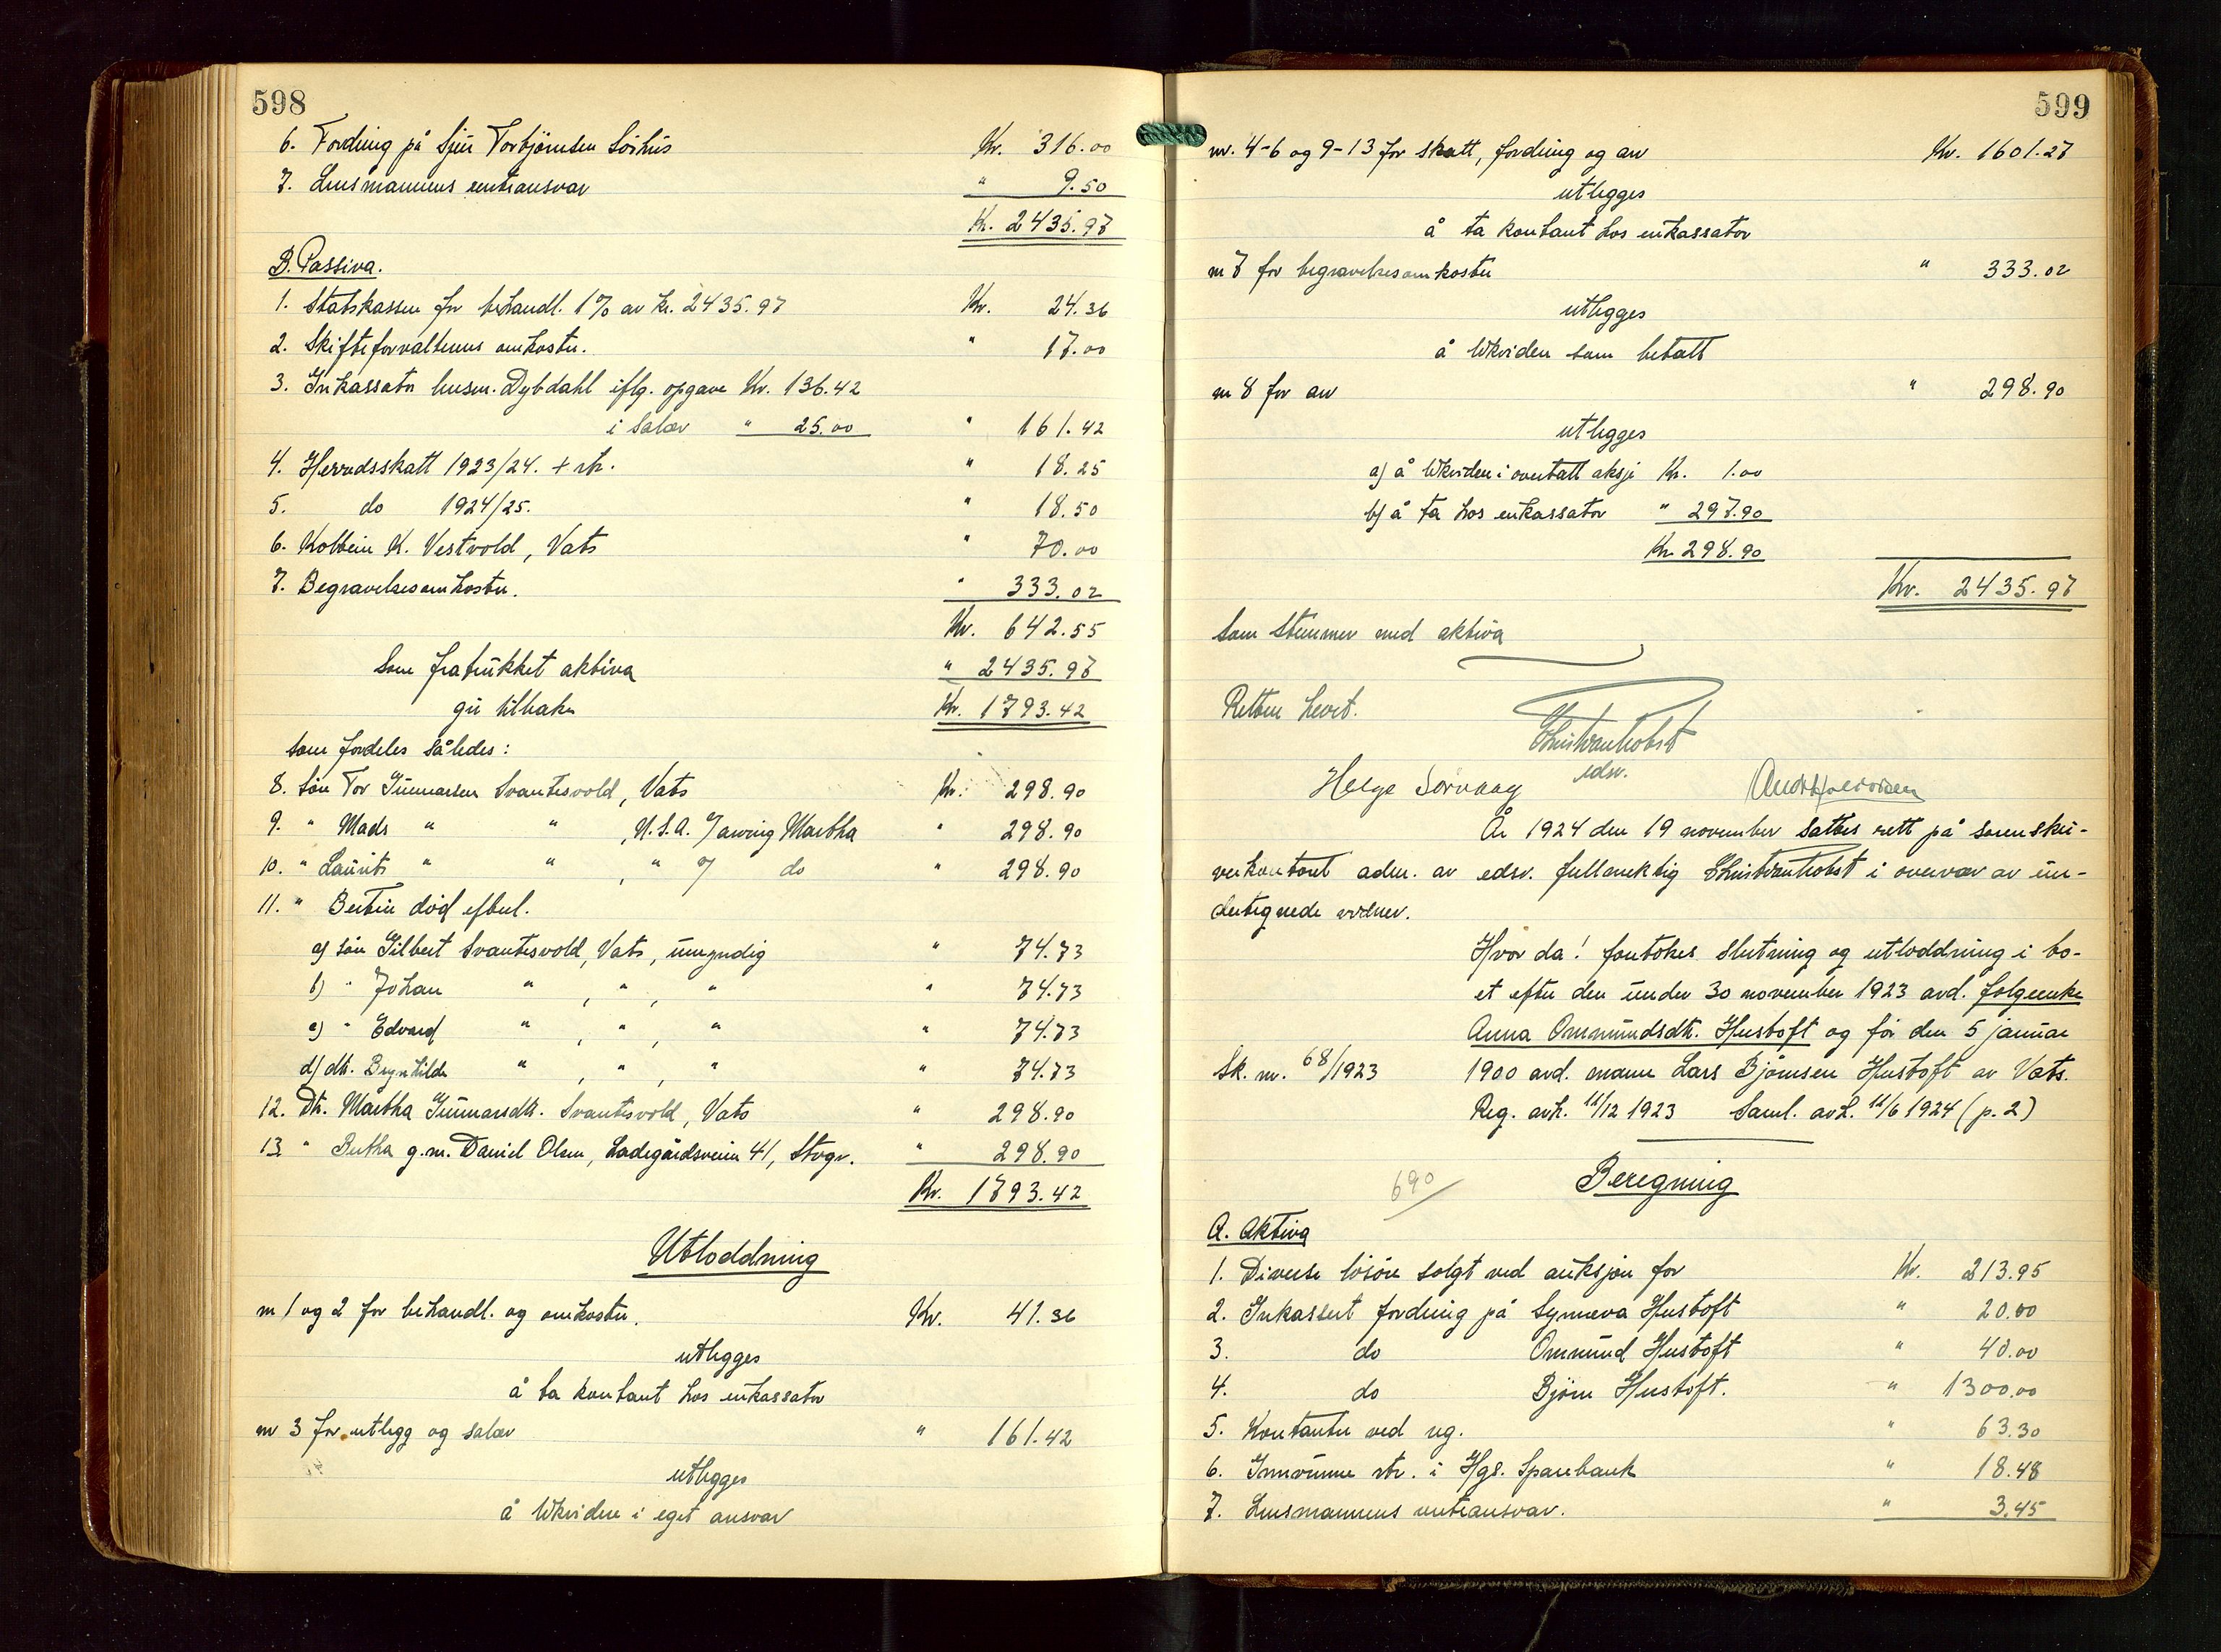 598
6. Fordring på Sjur Torbjørnsen Sørhus Kr. 316.00
7. Lensmannens renteansvar " 9.50
Kr. 2435.97
B. Passiva.
1. Statskassen for behandl. 1% av kr. 2435.97 Kr. 24.36
2. Skifteforvalterens omkostn. " 17.00
3. Inkassator lensm. Dybdahl iflg. opgave Kr. 136.42
i salær " 25.00 " 161.42
4. Herredsskatt 1923/24. + rtr. " 18.25
5. do 1924/25. " 18.50
6. Kolbein K. Vestvold, Vats " 70.00
7. Begravelsesomkostn. " 333.02
Kr. 642.55
som fratrukket aktiva " 2435.97
gir tilbake Kr. 1793.42
som fordeles således:
8. Søn Tor Gunnarsen Svantesvold, Vats Kr. 298.90
9. " Mads " " , U.S.A. % arving Martha " 298.90
10. " Laurits " " , " % do " 298.90
11. " Bertin død efterl.
a) søn Gilbert Svantesvold, Vats, umyndig " 74.73
b) " Johan " , " , " " 74.73
c) " Edvard " , " , " " 74.73
d) dtr. Bryntilde " , " , " " 74.73
12. Dtr. Martha Gunnarsdtr. Svantesvold, Vats " 298.90
13. " Bertha g.m. Daniel Olsen, Ladegårdsveien 41, Stvgr. " 298.90
Kr. 1793.42
Utloddning
nr 1 og 2 for behandl. og omkostn. Kr. 41.36
utlegges
å ta kontant hos inkassator
nr 3 for utlegg og salær " 161.42
utlegges
å likvidere i eget ansvar
599
nr. 4-6 og 9-13 for skatt, fordring og arv Kr. 1601.27
utlegges
å ta kontant hos inkassator
nr 7 for begravelsesomkostn " 333.02
utlegges
å likvidere som betalt
nr 8 for arv " 298.90
utlegges
a) å likvidere i overtatt aksje Kr. 1.00
b) å ta hos inkassator " 297.90
Kr. 298.90
Kr. 2435.97
Som stemmer med aktiva
Retten hevet.
edsv.
Helge Sørvaag
År 1924 den 19 november sattes rett på sorenskri-
verkontoret adm. av edsv. fullmektig i overvær av un-
dertegnede vidner.
Hvor da! foretokes slutning og utloddning i bo-
et efter den under 30 november 1923 avd. folgeenke
Anna Ommundsdtr. Hustoft og før den 5 januar
Sk. nr. 68/1923 1900 avd. mann Lars Bjørnsen Hustoft av Vats.
Reg. avh. 11/12 1923 Saml. avh. 11/6 1924 (p. 2)
690
Beregning
A. Aktiva
1. Diverse løsøre solgt ved auksjon for Kr. 213.95
2. Inkassert fordring på Synneva Hustoft " 20.00
3. do Ommund Hustoft " 40.00
4. do Bjørn Hustoft. " 1300.00
5. Kontanter ved reg. " 63.30
6. Innvunne rtr. i Hgs. Sparebank " 18.48
7. Lensmannens renteansvar. " 3.45